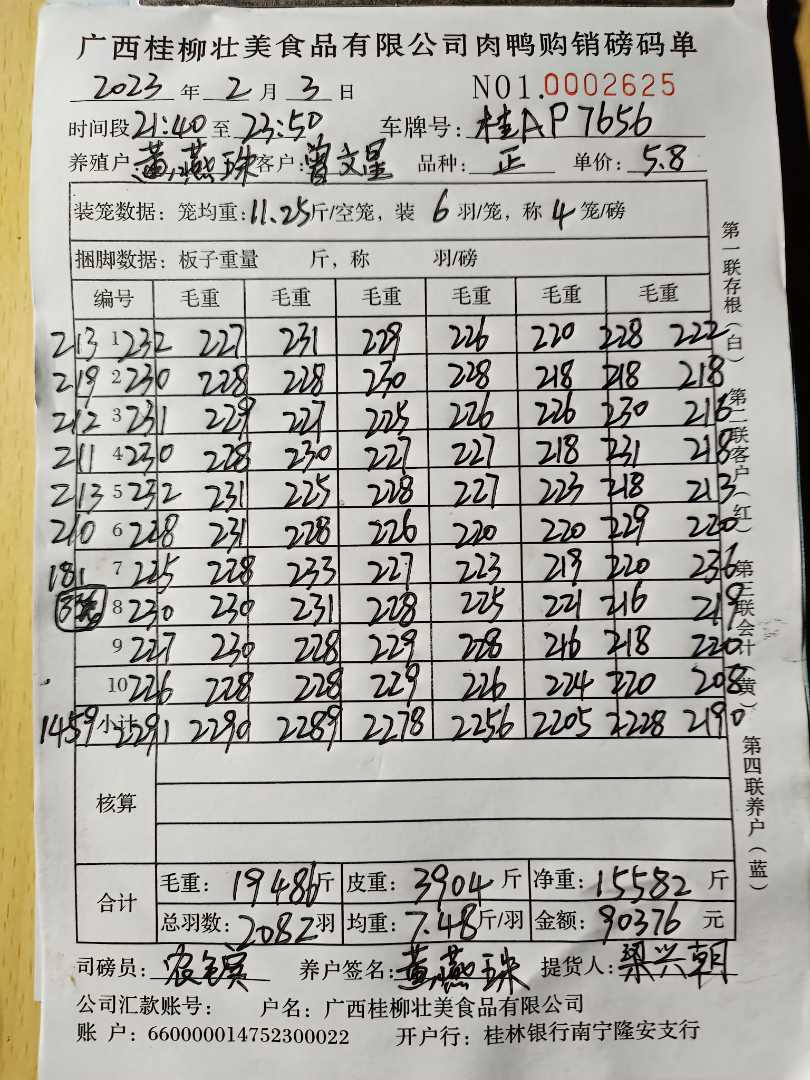 广西桂柳壮美食品有限公司肉鸭购销磅码单
2023 年 2 月 3 日 NO1.0002625
时间段21:40至23:50 车牌号：桂AP7656
养殖户：黄燕珠 客户：曾文星 品种：正 单价：5.8
装笼数据：笼均重：11.25斤/空笼，装 6 羽/笼，称 4 笼/磅
捆脚数据：板子重量 斤，称 羽/磅
编号 毛重 毛重 毛重 毛重 毛重 毛重
213 1 232 227 231 229 226 220 228 222
219 2 230 228 228 230 228 218 218 218
212 3 231 229 227 225 226 226 230 216
211 4 230 228 230 227 227 218 231 218
213 5 232 231 225 228 227 223 218 213
210 6 228 231 228 226 220 220 229 220
181 7 225 228 233 227 223 219 220 236
8 230 230 231 228 225 221 216 219
9 227 230 228 229 228 216 218 220
10 226 228 228 229 226 224 220 208
1459 小计 2291 2290 2289 2278 2256 2205 2228 2190
核算
合计
毛重：19486斤 皮重：3904斤 净重：15582斤
总羽数：2082羽 均重：7.48斤/羽 金额：90376元
司磅员： 养户签名：黄燕珠 提货人：梁兴朝
公司汇款账号： 户名：广西桂柳壮美食品有限公司
账 户：660000014752300022 开户行：桂林银行南宁隆安支行
第一联存根（白）
第二联客户（红）
第三联会计（黄）
第四联养户（蓝）